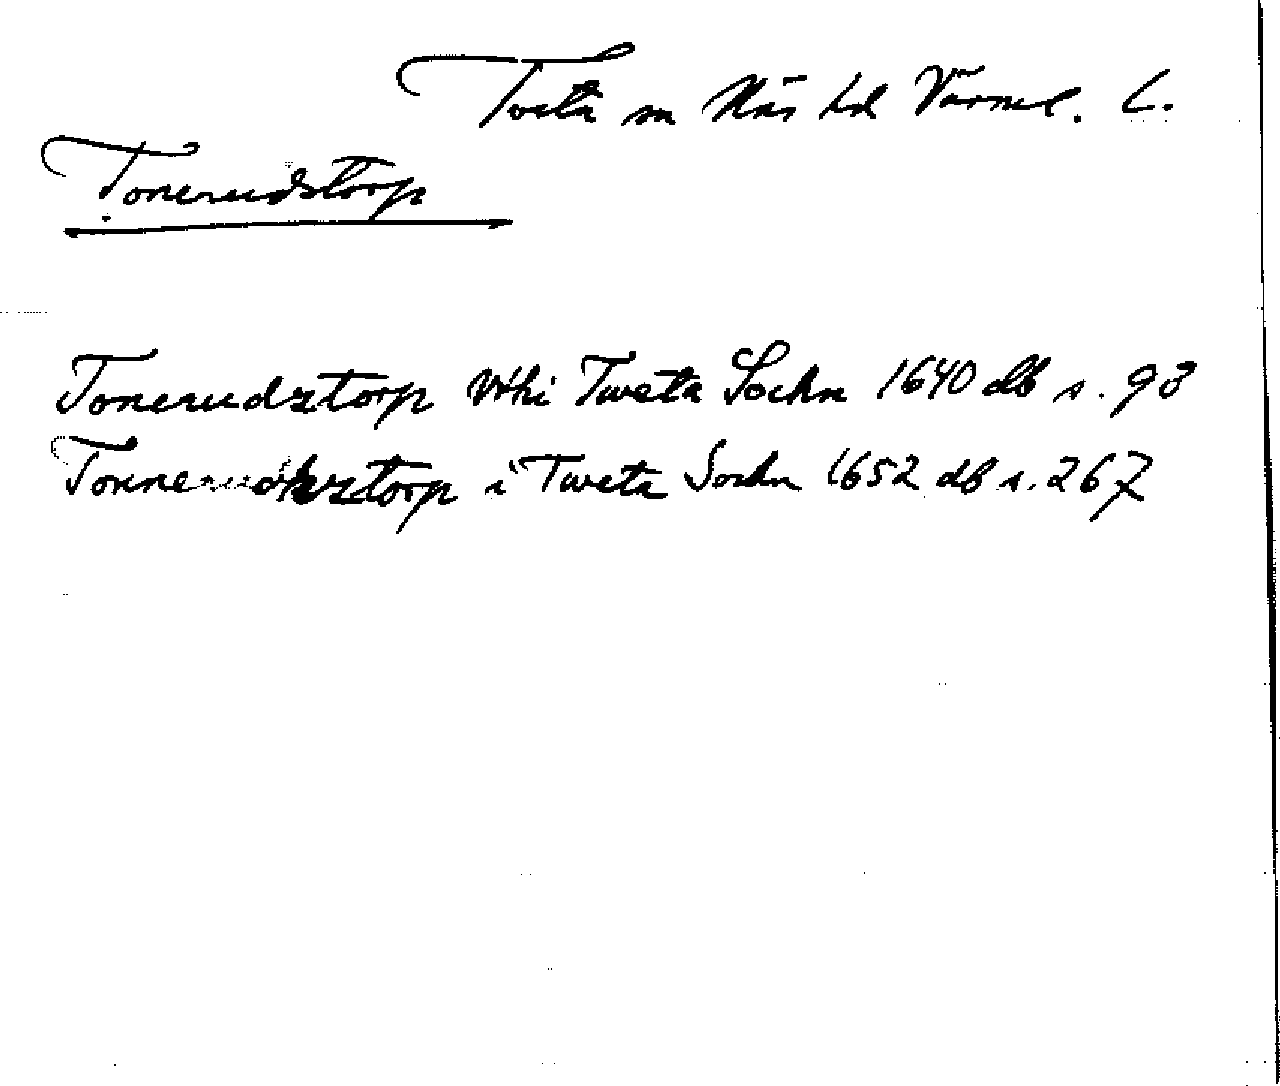 Tveta sn Näs hd Värml. L.
Tonerudstorp
Tonerudztorp Vthi Tweta Sochn 1640 db s. 98
i Tweta Sochn 1652 db s. 267